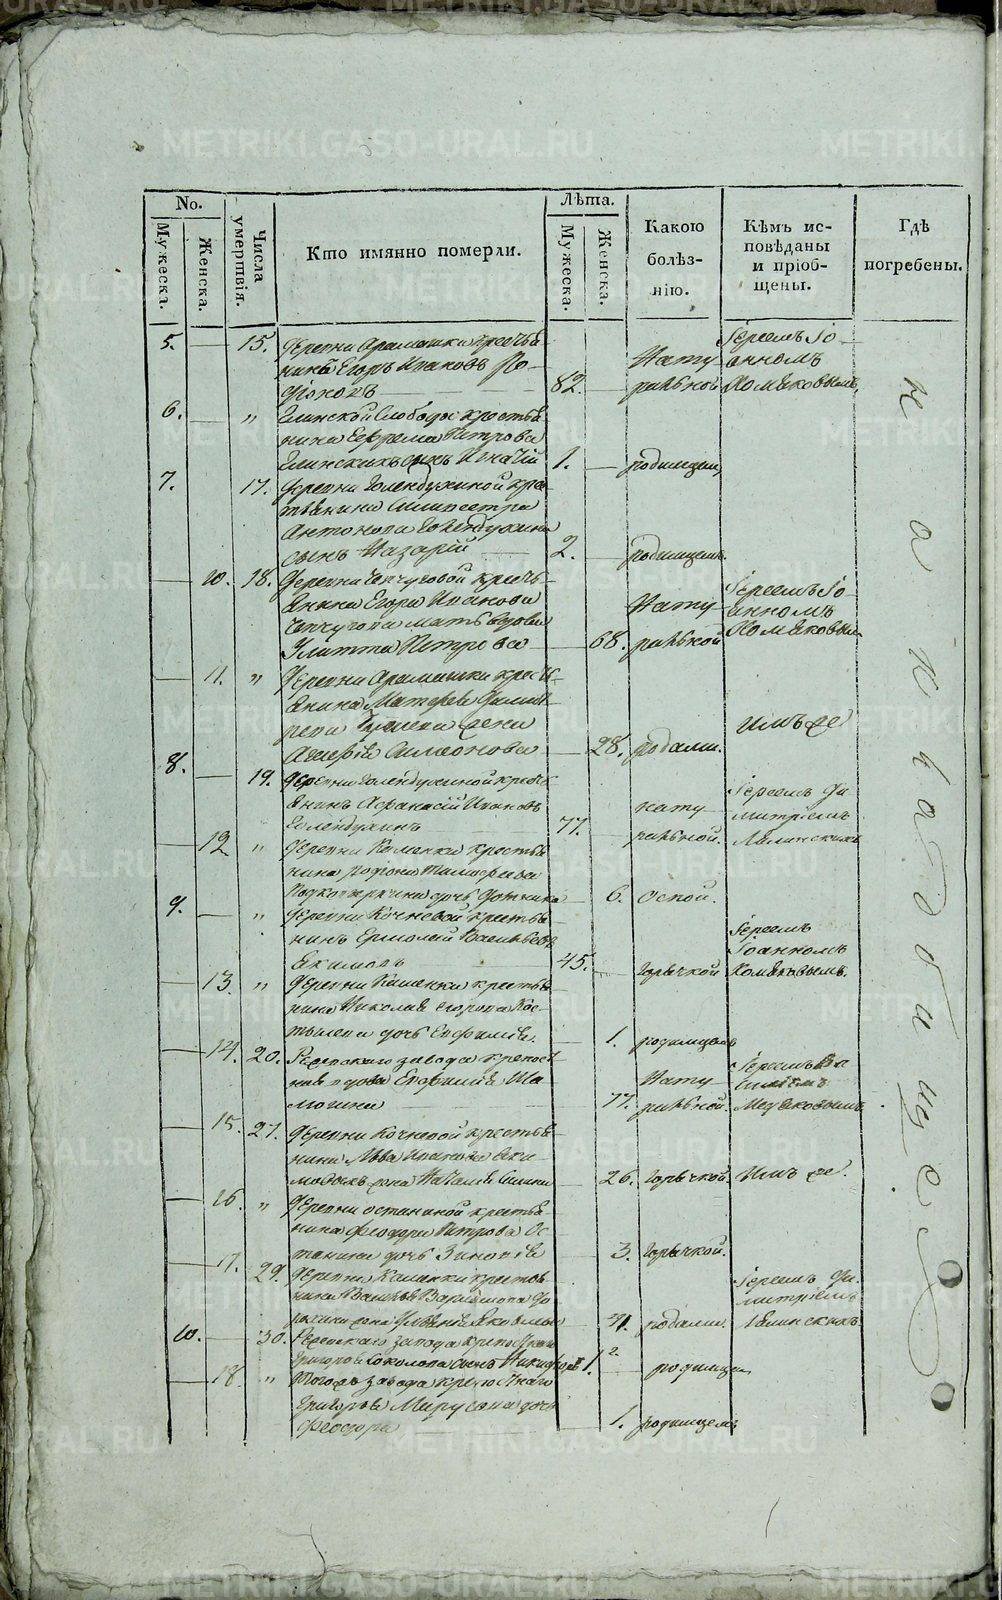 No.
Мужеска.
Женска.
Числа умертвія.
Кто имянно померли.
Лѣта.
Мужеска.
Женска.
Какою болѣз-
нію.
Кѣмъ ис-
повѣданы
и пріоб-
щены.
Гдѣ
погребены.
5. 15. Деревни Арамашки крестья
нинъ Егоръ Ивановъ
82. Нату
ральной
Іереемъ Іо-
анномъ
Хомяковымъ
6. " Глинской Слободы крестья
нина Ефрема Петрова
Глинскихъ сынъ Игнатій 1. родимцемъ
7. 17. Деревни Голендухиной крес
тьянина Силивестра
Антонова Голендухина
сынъ Назарій 2. родимцемъ.
10. 18. Деревни Чепчуговой кресть-
янина Егора Иванова
Чепчугова мать вдова
Улитта Петрова 68. Нату
ральной
Іереемъ Іо-
анномъ
Хомяковымъ
11. " Деревни Арамашки кресть-
янина Матфея
жена
Симеонова 28. родами. имъ же
8. 19. Деревни Голендухиной кресть
янинъ Афанасій Ивановъ
Голендухинъ 77. нату
ральной.
Іереемъ Ди
митріемъ
12 " Деревни Каменки крестья
нина Родіона Тимофеева
дочь 6. Оспой.
9. " Деревни Кочневой крестья
нинъ Ермолай Васильевъ
Екимовъ 45. горячкой
Іереемъ
Іоанномъ
Хомяковымъ.
13. " Деревни Каменки крестья
нина Николая Егорова Кос-
тылева дочь Евфимія. 1. родимцемъ
14. 20. Режевскаго завода крепост
ная вдова Евфимія
77. Нату
ральной.
Іереемъ Ва
силіемъ
Медяковымъ.
15. 27. Деревни Кочневой крестья
нина Льва Иванова Еки
мовыхъ жена Наталія 26. горячкой Имъ же.
16. " Деревни Останиной крестья
нина Феодора Петрова Ос
танина дочь Зиновія 3. Горячкой.
17. 29. Деревни Каменки крестья
нина Василья
жена Яковлева родами.
Іереемъ Ди-
митріемъ
10. 30. Режевскаго завода крепостнаго
Григорья Соколова сынъ Никифоръ 1. 2 родимцем
18. " Тогожъ завода крепостнаго
Григорья дочь
Феодора 1. родимцемъ
на кладбище
METRIKI.GASO-URAL.RU